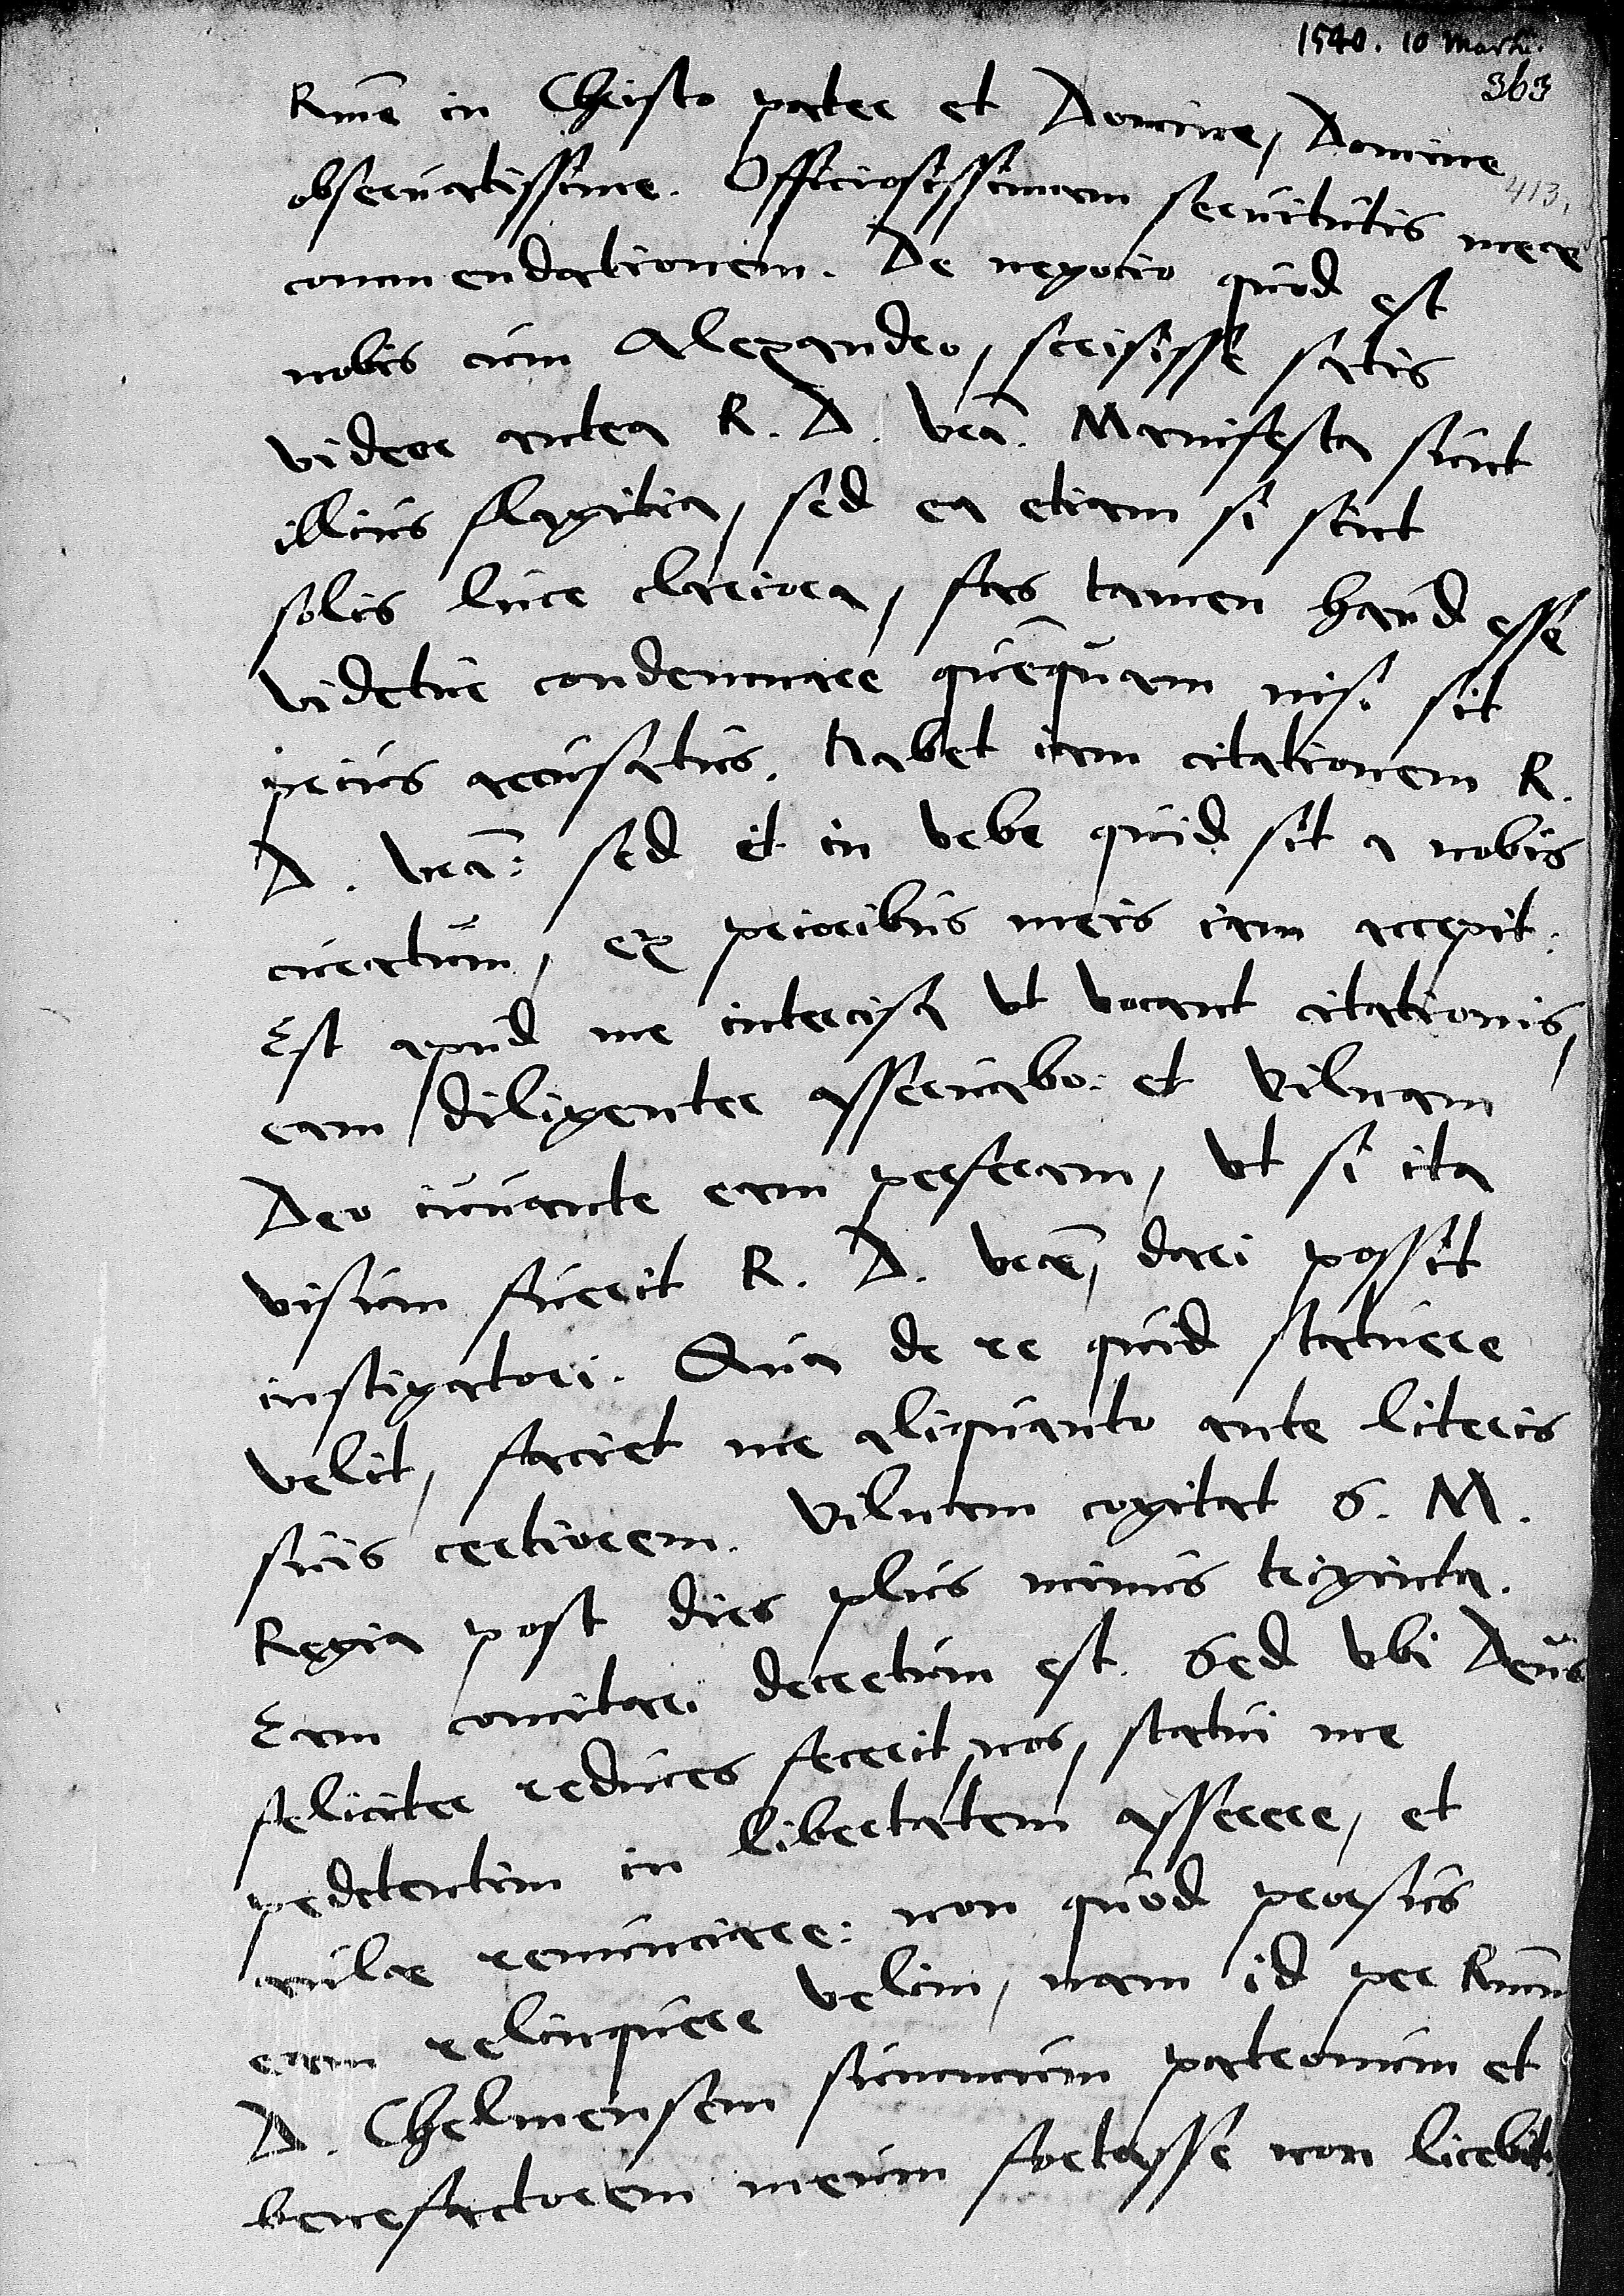 1540. 10 Martii.
363
Rme in Christo pater et Domine, Domine
413.
observatissime. Officiosissimam servitutis meae
commendationem. De negocio quod est
nobis cum Alexandro, scripsisse satis
videor antea R. D. vrã. Manifesta sunt
illius flagitia, sed ea etiam si sint
solis luce clariora, fas tamen haud esse
videtur condemnare quẽquam nisi sit
prius accusatus. Habet iam citationem R.
D. vrã: sed et in urbe quid sit a nobis
curatum, ex prioribus meis iam accepit.
Est apud me intercisa ut vocant citationis,
eam diligenter asservabo: et Vilnam
Deo iuvante eam perferam, ut si ita
visum fuerit R. D. vrẽ, dari possit
instigatori. Qua de re quid statuere
velit, faciet me aliquanto ante literis
suis certiorem. Vilnam cogitat S. M.
Regia post dies plus minus triginta.
Eam comitari decretum est. Sed ubi Deus
feliciter reduces fecerit nos, statui me
pedetentim in libertatem asserere, et
aulae renunciare: non quod prorsus
eam relinquere velim, nam id per Rmũ
D. Chelmensem summum patronum et
benefactorem meum fortasse non licebit.